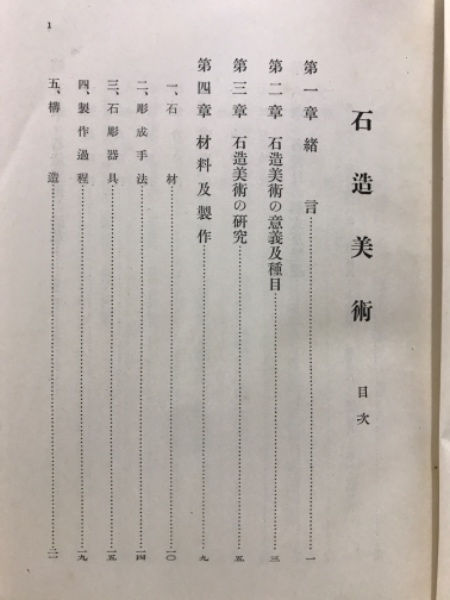 石造美術 目次
第一章 緒言……一
第二章 石造美術の意義及種目……三
第三章 石造美術の研究……五
第四章 材料及製作……九
一、石材……一〇
二、彫成手法……一四
三、石彫器具……一五
四、製作過程……一九
五、構造……二一
1